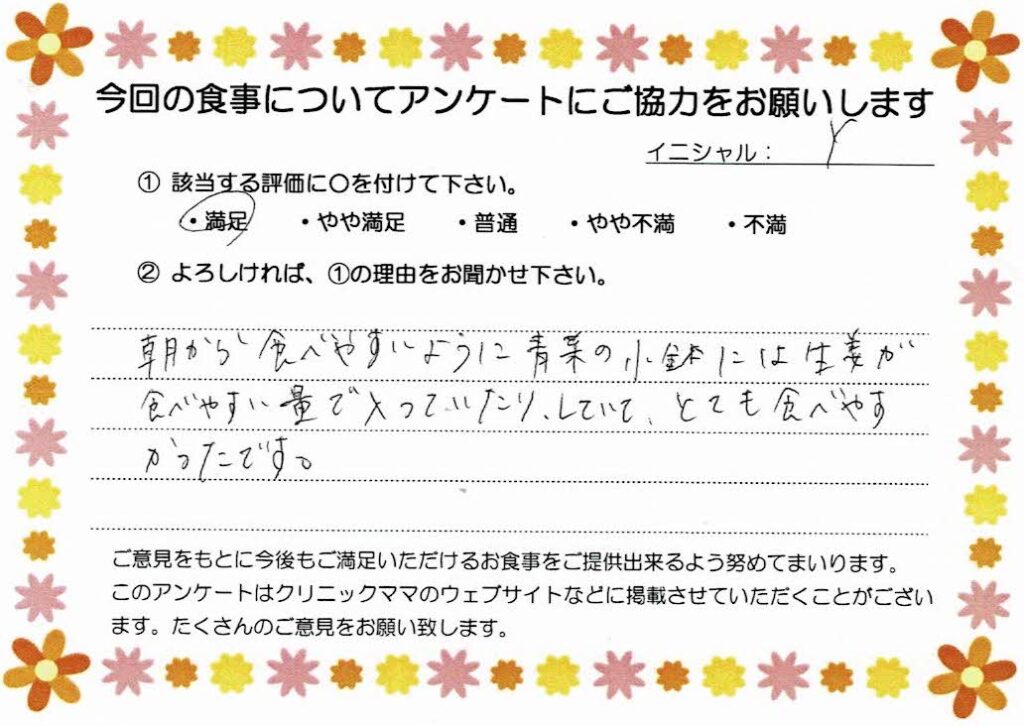 今回の食事についてアンケートにご協力をお願いします
イニシャル： Y
① 該当する評価に〇を付けて下さい。
・満足　・やや満足　・普通　・やや不満　・不満
② よろしければ、①の理由をお聞かせ下さい。
朝から食べやすいように青菜の小鉢には生姜が
食べやすい量で入っていたり、していて、とても食べやす
かったです。
ご意見をもとに今後もご満足いただけるお食事をご提供出来るよう努めてまいります。
このアンケートはクリニックママのウェブサイトなどに掲載させていただくことがござい
ます。たくさんのご意見をお願い致します。